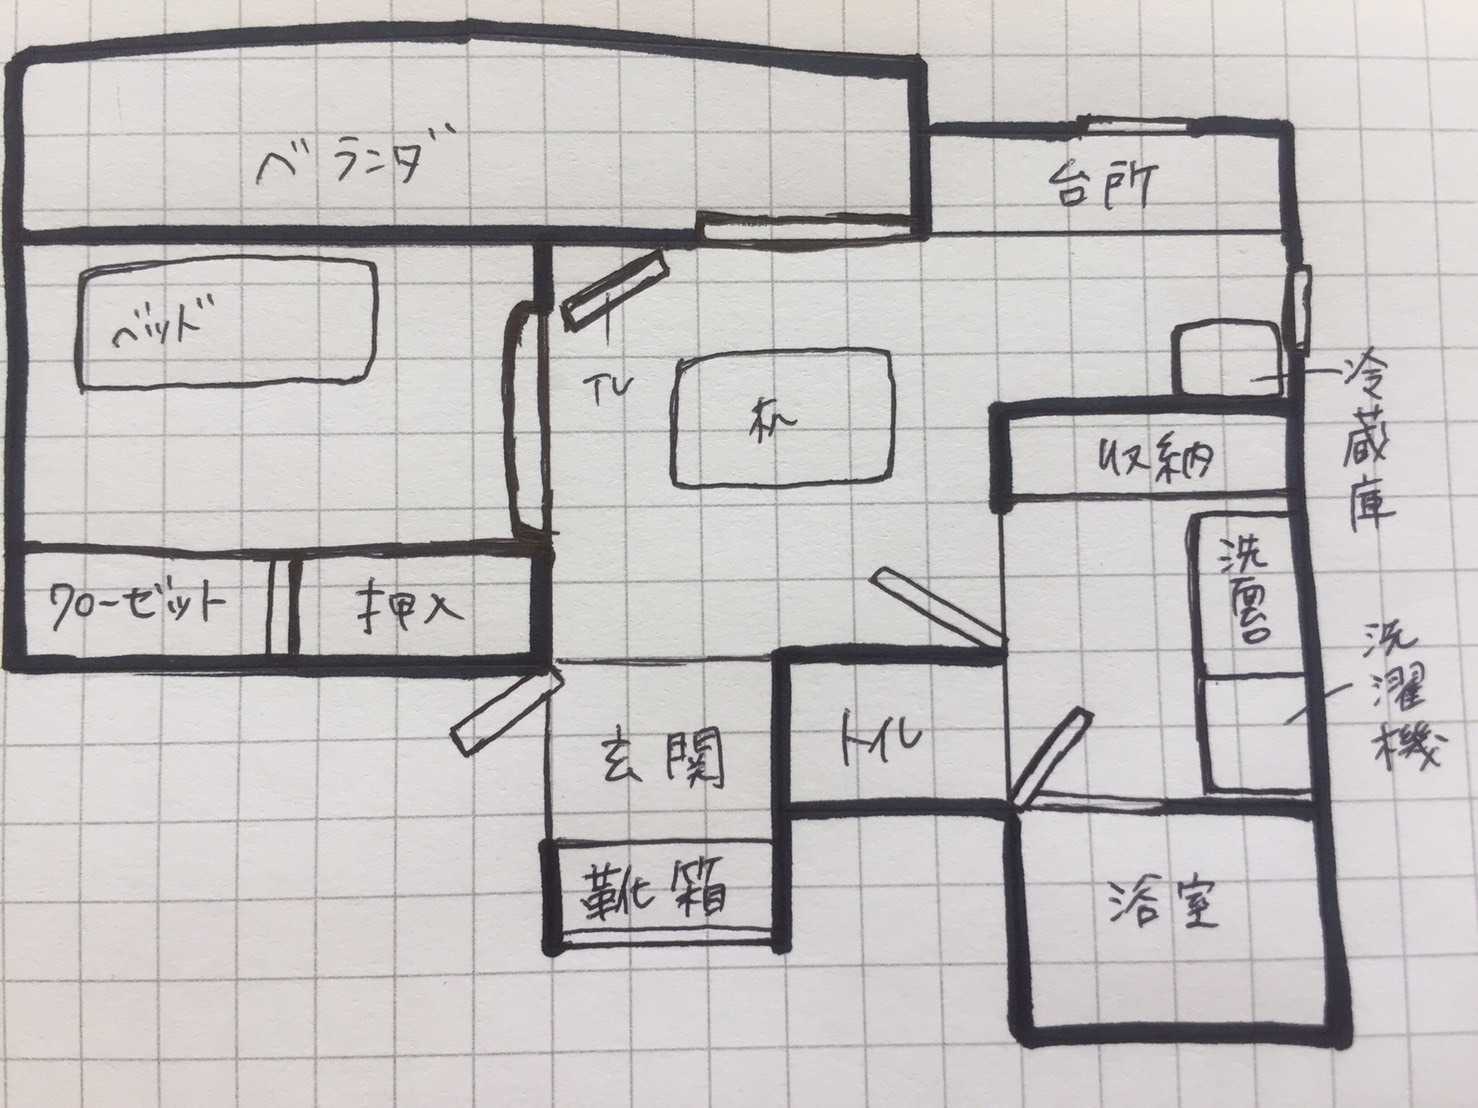 ベランダ
台所
ベッド
TV
机
冷蔵庫
収納
クローゼット
押入
洗面台
洗濯機
玄関
トイレ
靴箱
浴室